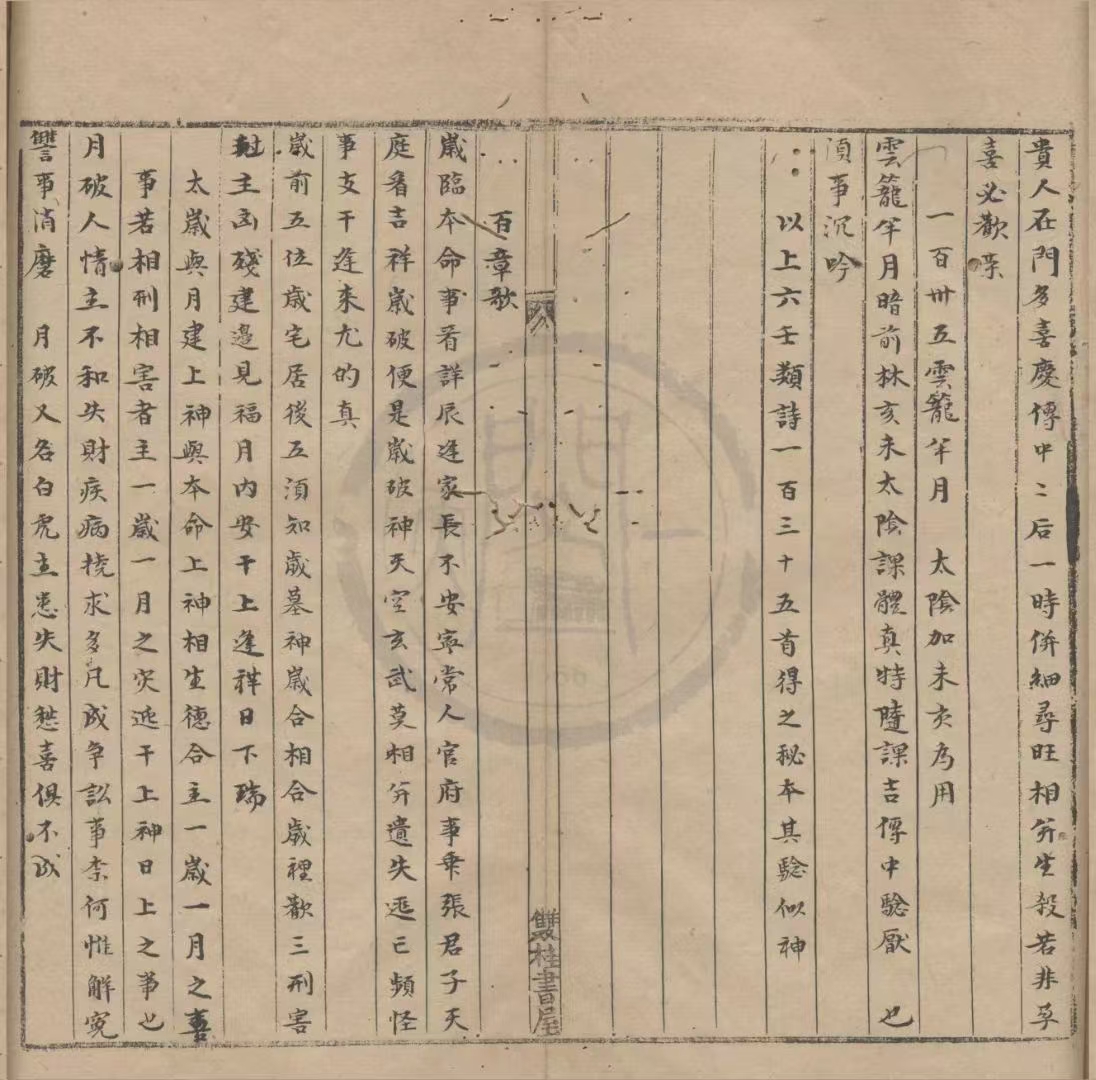 貴人在門多喜慶傳中二后一時併細尋旺相并生殺若非孕
喜必歡榮
一百卅五雲籠半月　太陰加未亥為用
雲籠半月暗前林亥未太陰課體真特隨課吉傳中驗厭　也
須事沉吟
以上六壬類詩一百三十五首得之秘本其驗似神
雙桂書屋
百章歌
歲臨本命事看詳辰逢家長不安寧常人官府事乘張君子天
庭看吉祥歲破便是歲破神天空玄武莫相并遺失逃亡頻怪
事支干逢來尤的真
歲前五位歲宅居後五須知歲墓神歲合相合歲裡歡三刑害
尅主凶殘建邉見福月內安干上逢祥日下瑞
太歲與月建上神與本命上神相生德合主一歲一月之喜
事若相刑相害者主一歲一月之灾逓干上神日上之事也
月破人情主不和失財疾病撓求多凡成争訟事柰何惟解寃
讐事消磨　月破又名白虎主患失財愁喜俱不成